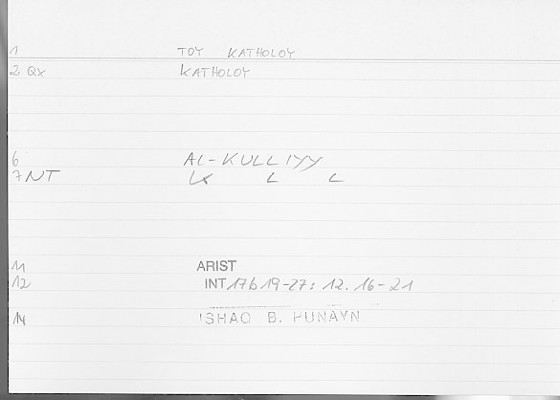 1 TOY KATHOLOY
2 QX KATHOLOY
6 AL-KULLIYY
7 NT K L L
11 ARIST
12 INT 17b19-27: 12.16-21
14 ISHAQ B. HUNAYN